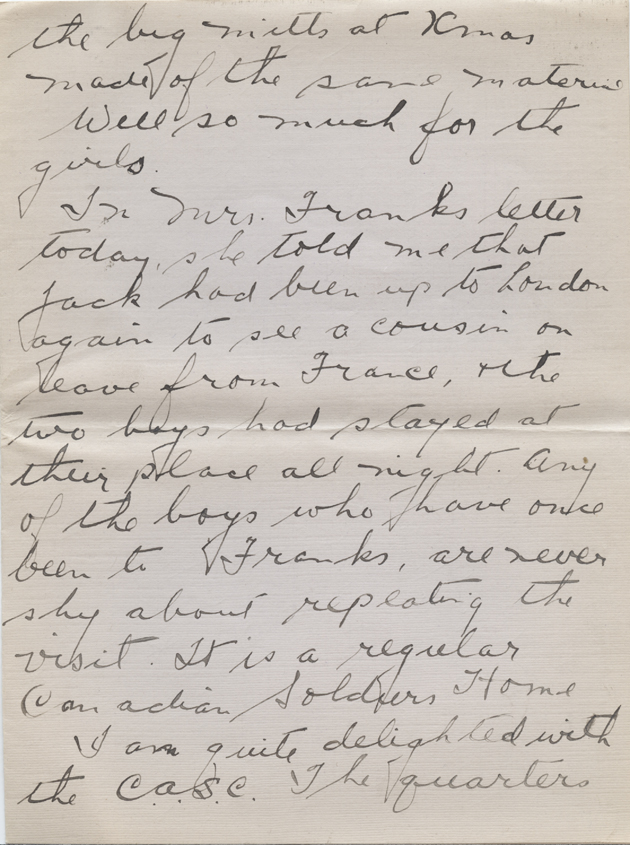 the big mitts at Xmas
made of the same materia
Well so much for the
girls.
In Mrs. Franks letter
today, she told me that
Jack had been up to London
again to see a cousin on
leave from France, & the
two boys had stayed at
their place all night. Any
of the boys who have once
been to Franks, are never
shy about repeating the
visit. It is a regular
Canadian Soldiers Home
I am quite delighted with
the C.A.S.C. The quarters